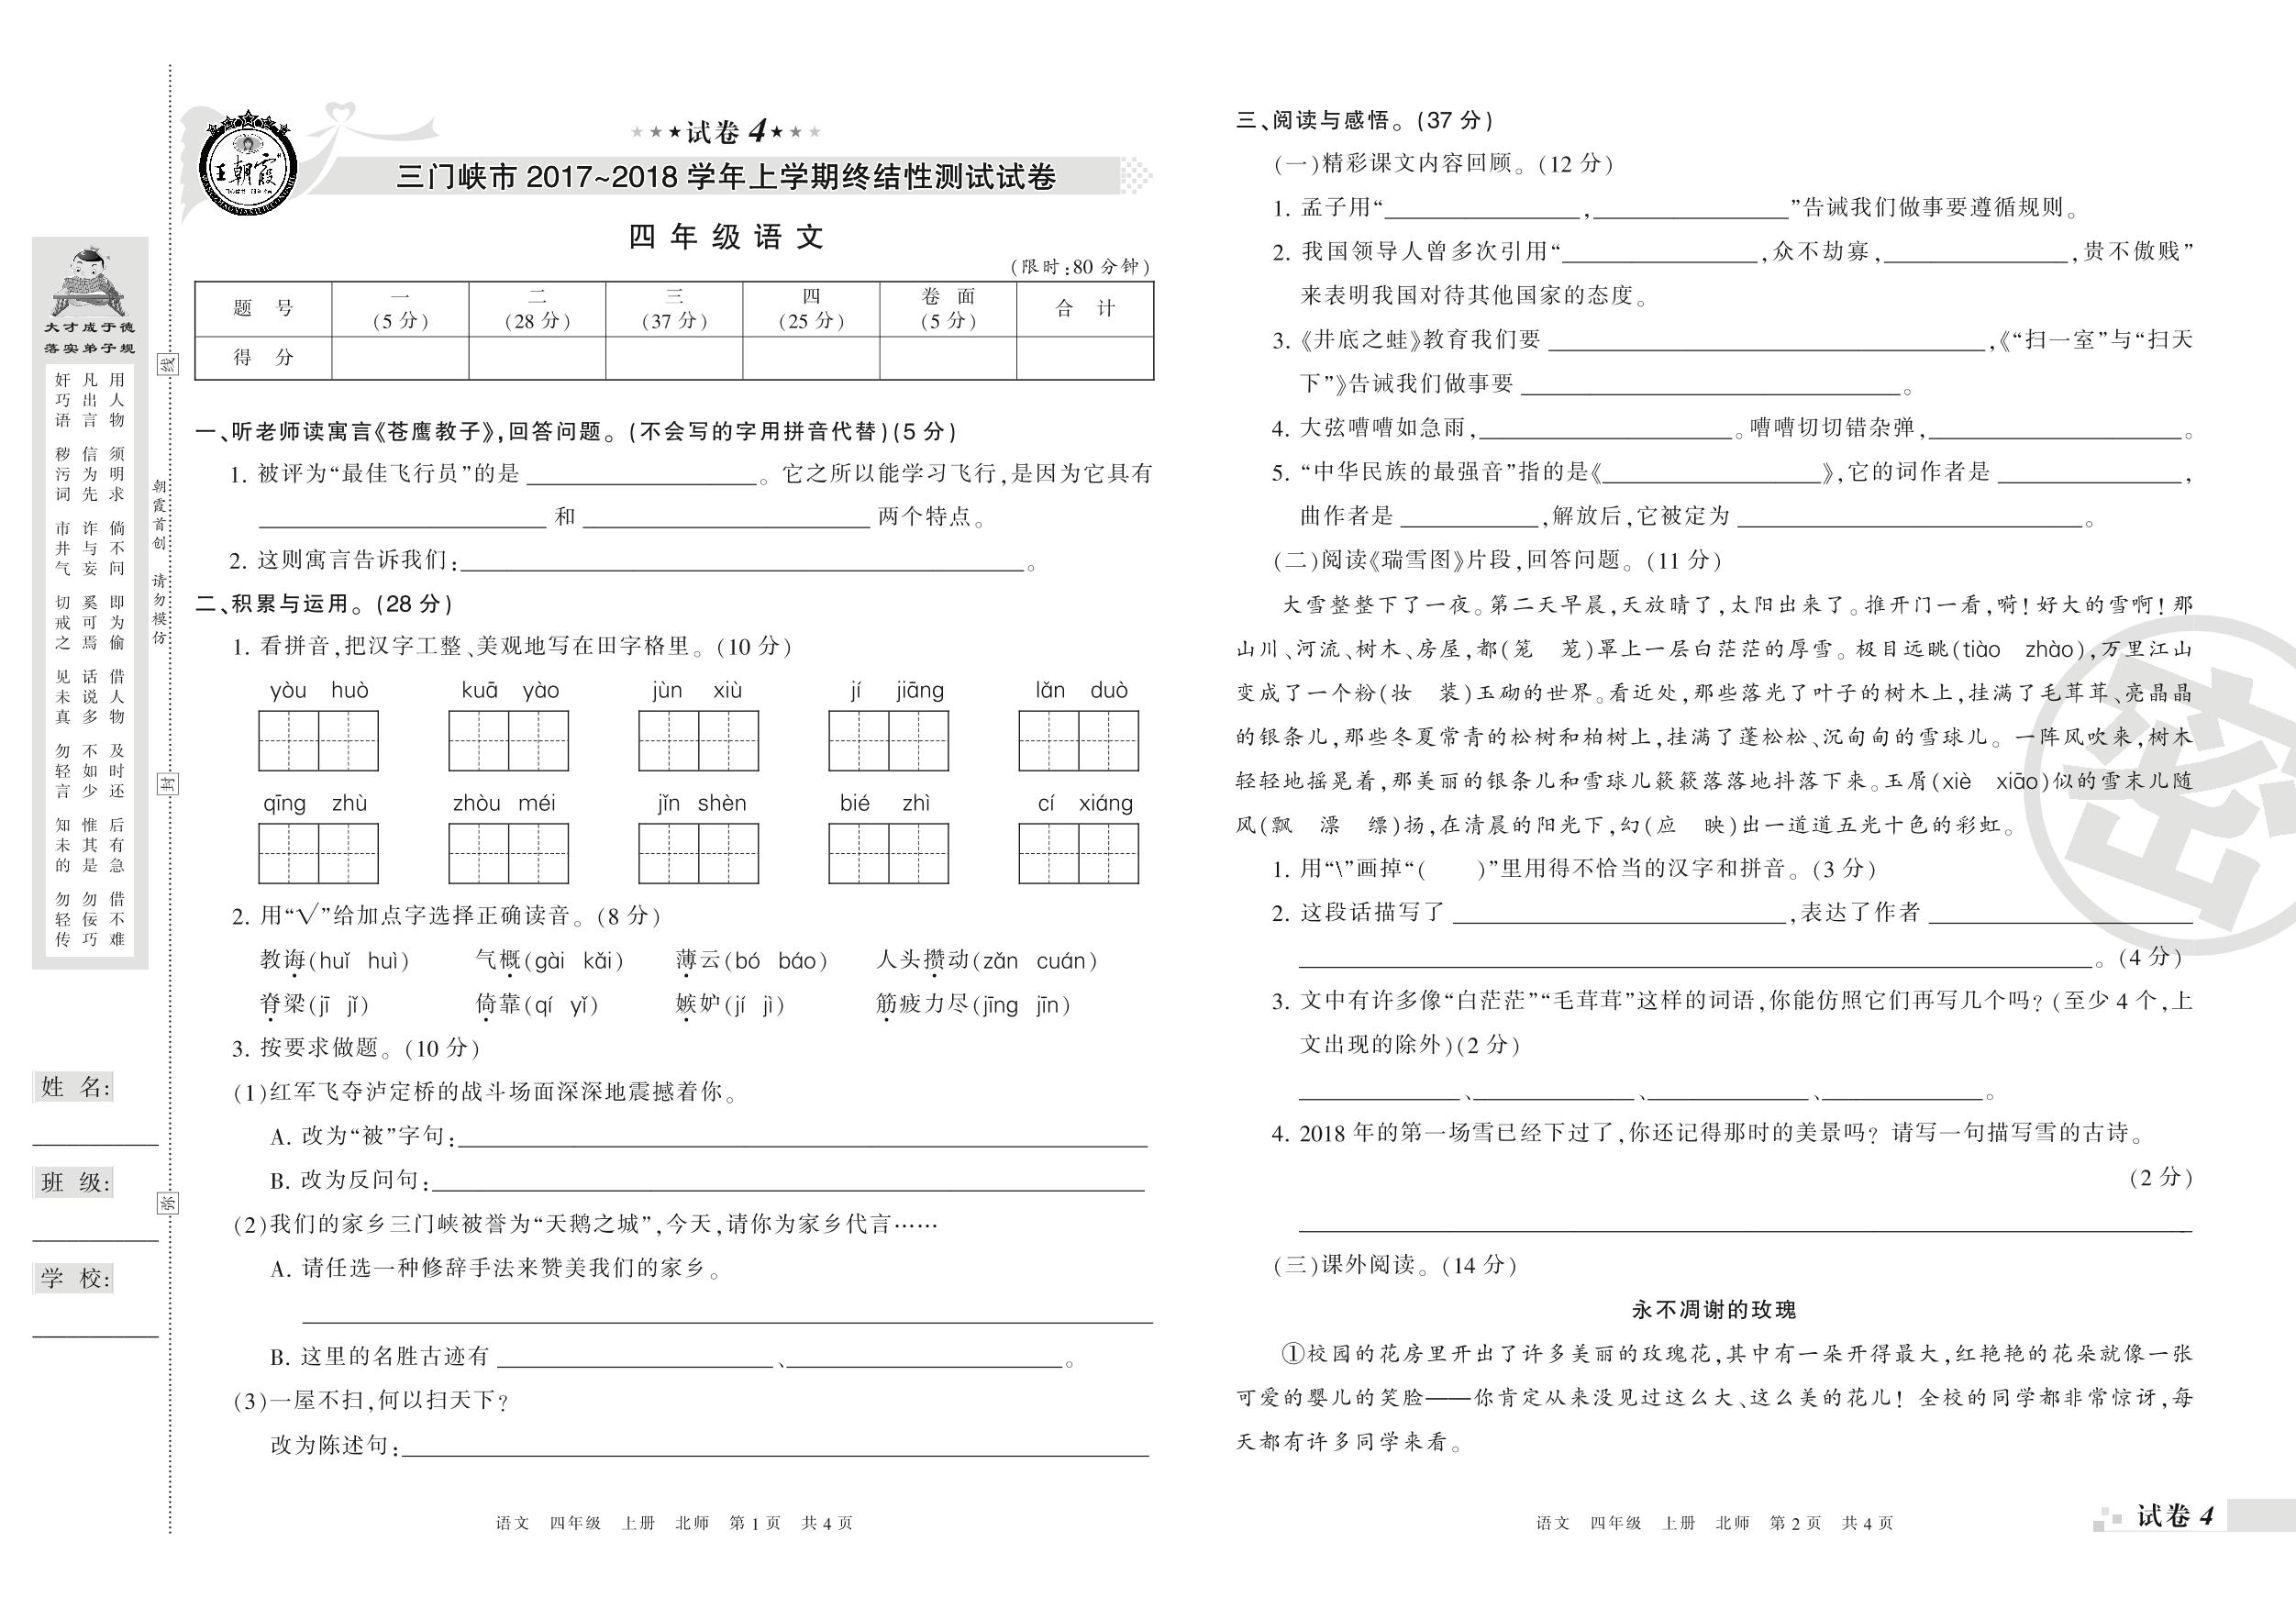 大才成于德
落实弟子规
用人物 须明求 倘不问 即为偷 借人物 及时还 后有急 借不难
凡出言 信为先 诈与妄 奚可焉 话说多 不如少 惟其是 勿佞巧
奸巧语 秽污词 市井气 切戒之 见未真 勿轻言 知未的 勿轻传
姓 名:
班 级:
学 校:
朝霞首创 请勿模仿
线
封
弥
王朝霞
★★★试卷 4★★★
三门峡市 2017~2018 学年上学期终结性测试试卷
四 年 级 语 文
(限时:80 分钟)
题 号 一(5 分) 二(28 分) 三(37 分) 四(25 分) 卷 面(5 分) 合 计
得 分
一、听老师读寓言《苍鹰教子》,回答问题。(不会写的字用拼音代替)(5 分)
1. 被评为“最佳飞行员”的是 ________。它之所以能学习飞行,是因为它具有
________ 和 ________ 两个特点。
2. 这则寓言告诉我们:________。
二、积累与运用。(28 分)
1. 看拼音,把汉字工整、美观地写在田字格里。(10 分)
yòu huò kuā yào jùn xiù jí jiāng lǎn duò
qīng zhù zhòu méi jǐn shèn bié zhì cí xiáng
2. 用“√”给加点字选择正确读音。(8 分)
教诲(huǐ huì) 气概(gài kǎi) 薄云(bó báo) 人头攒动(zǎn cuán)
脊梁(jī jǐ) 倚靠(qí yǐ) 嫉妒(jí jì) 筋疲力尽(jīng jīn)
3. 按要求做题。(10 分)
(1)红军飞夺泸定桥的战斗场面深深地震撼着你。
A. 改为“被”字句:________
B. 改为反问句:________
(2)我们的家乡三门峡被誉为“天鹅之城”,今天,请你为家乡代言……
A. 请任选一种修辞手法来赞美我们的家乡。
________
B. 这里的名胜古迹有 ________、________。
(3)一屋不扫,何以扫天下?
改为陈述句:________
语文 四年级 上册 北师 第 1 页 共 4 页
三、阅读与感悟。(37 分)
(一)精彩课文内容回顾。(12 分)
1. 孟子用“________,________”告诫我们做事要遵循规则。
2. 我国领导人曾多次引用“________,众不劫寡,________,贵不傲贱”
来表明我国对待其他国家的态度。
3.《井底之蛙》教育我们要 ________,《“扫一室”与“扫天
下”》告诫我们做事要 ________。
4. 大弦嘈嘈如急雨,________。嘈嘈切切错杂弹,________。
5. “中华民族的最强音”指的是《________》,它的词作者是 ________,
曲作者是 ________,解放后,它被定为 ________。
(二)阅读《瑞雪图》片段,回答问题。(11 分)
大雪整整下了一夜。第二天早晨,天放晴了,太阳出来了。推开门一看,嗬!好大的雪啊!那
山川、河流、树木、房屋,都(笼 茏)罩上一层白茫茫的厚雪。极目远眺(tiào zhào),万里江山
变成了一个粉(妆 装)玉砌的世界。看近处,那些落光了叶子的树木上,挂满了毛茸茸、亮晶晶
的银条儿,那些冬夏常青的松树和柏树上,挂满了蓬松松、沉甸甸的雪球儿。一阵风吹来,树木
轻轻地摇晃着,那美丽的银条儿和雪球儿簌簌落落地抖落下来。玉屑(xiè xiāo)似的雪末儿随
风(飘 漂 缥)扬,在清晨的阳光下,幻(应 映)出一道道五光十色的彩虹。
1. 用“\”画掉“( )”里用得不恰当的汉字和拼音。(3 分)
2. 这段话描写了 ________,表达了作者 ________
________。(4 分)
3. 文中有许多像“白茫茫”“毛茸茸”这样的词语,你能仿照它们再写几个吗?(至少 4 个,上
文出现的除外)(2 分)
________、________、________、________。
4. 2018 年的第一场雪已经下过了,你还记得那时的美景吗? 请写一句描写雪的古诗。
(2 分)
________
(三)课外阅读。(14 分)
永不凋谢的玫瑰
①校园的花房里开出了许多美丽的玫瑰花,其中有一朵开得最大,红艳艳的花朵就像一张
可爱的婴儿的笑脸——你肯定从来没见过这么大、这么美的花儿! 全校的同学都非常惊讶,每
天都有许多同学来看。
语文 四年级 上册 北师 第 2 页 共 4 页
试卷 4
密